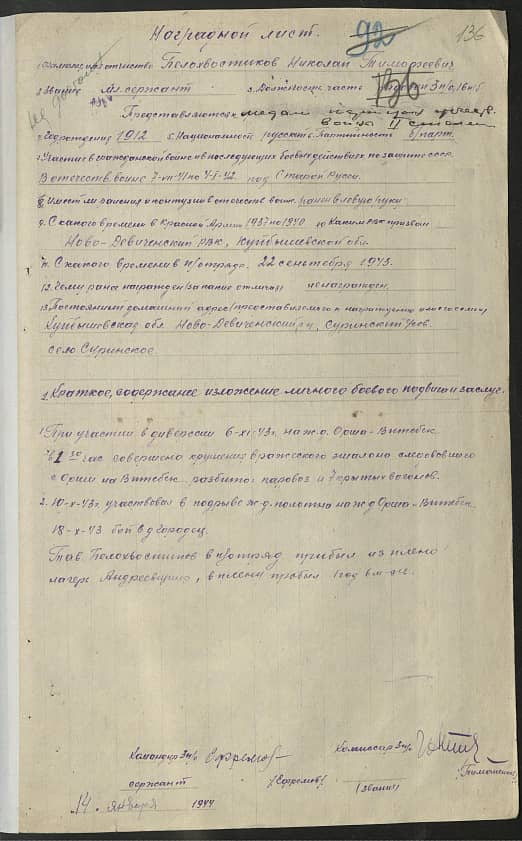 Наградной лист.
92
136
1. Фамилия, имя, отчество Белохвостиков Николай Тимофеевич
2. Звание мл. сержант 3. Должность, часть
Представляется к медали
войны II степени
4. Год рождения 1912 5. Национальность русский 6. Партийность б/парт.
7. Участие в гражданской войне и в последующих боевых действиях по защите СССР
В отечеств. войне 7-VII-41 по 4-I-42 под Старой Русси.
8. Имеет ли ранения и контузии в отечеств. войне ранен в левую руку
9. С какого времени в Красной Армии 1937 по 1940 10 Каким РВК призван
Ново-Девиченский РВК, Куйбышевской обл.
11. С какого времени в п/отряде 22 сентября 1943.
12. Чем ранее награжден (за какие отличия) не награжден.
13. Постоянный домашний адрес (представляемого к награждению и его семьи)
Куйбышевская обл. Ново-Девиченский р-н, Суринский с/сов.
село Суринское
2. Краткое, содержание изложение личного боевого подвига и заслуг.
1. При участии в диверсии 6-XI-43 г. на ж.д. Орша-Витебск
в 1 30 час совершено крушение вражеского эшелона следовавшего
с Орши на Витебск разбито: паровоз и 7 крытых вагонов.
2. 10-X-43 г. участвовал в подрыве ж-д. полотна на ж-д Орша-Витебск.
18-X-43 бой в д. Городец.
Тов. Белохвостиков в п/отряд прибыл из плена
лагерь Андреевщино, в плену пробыл 1 год
Командир Ефремов
Комиссар
сержант /Ефремов/
(звание)
14. января 1944